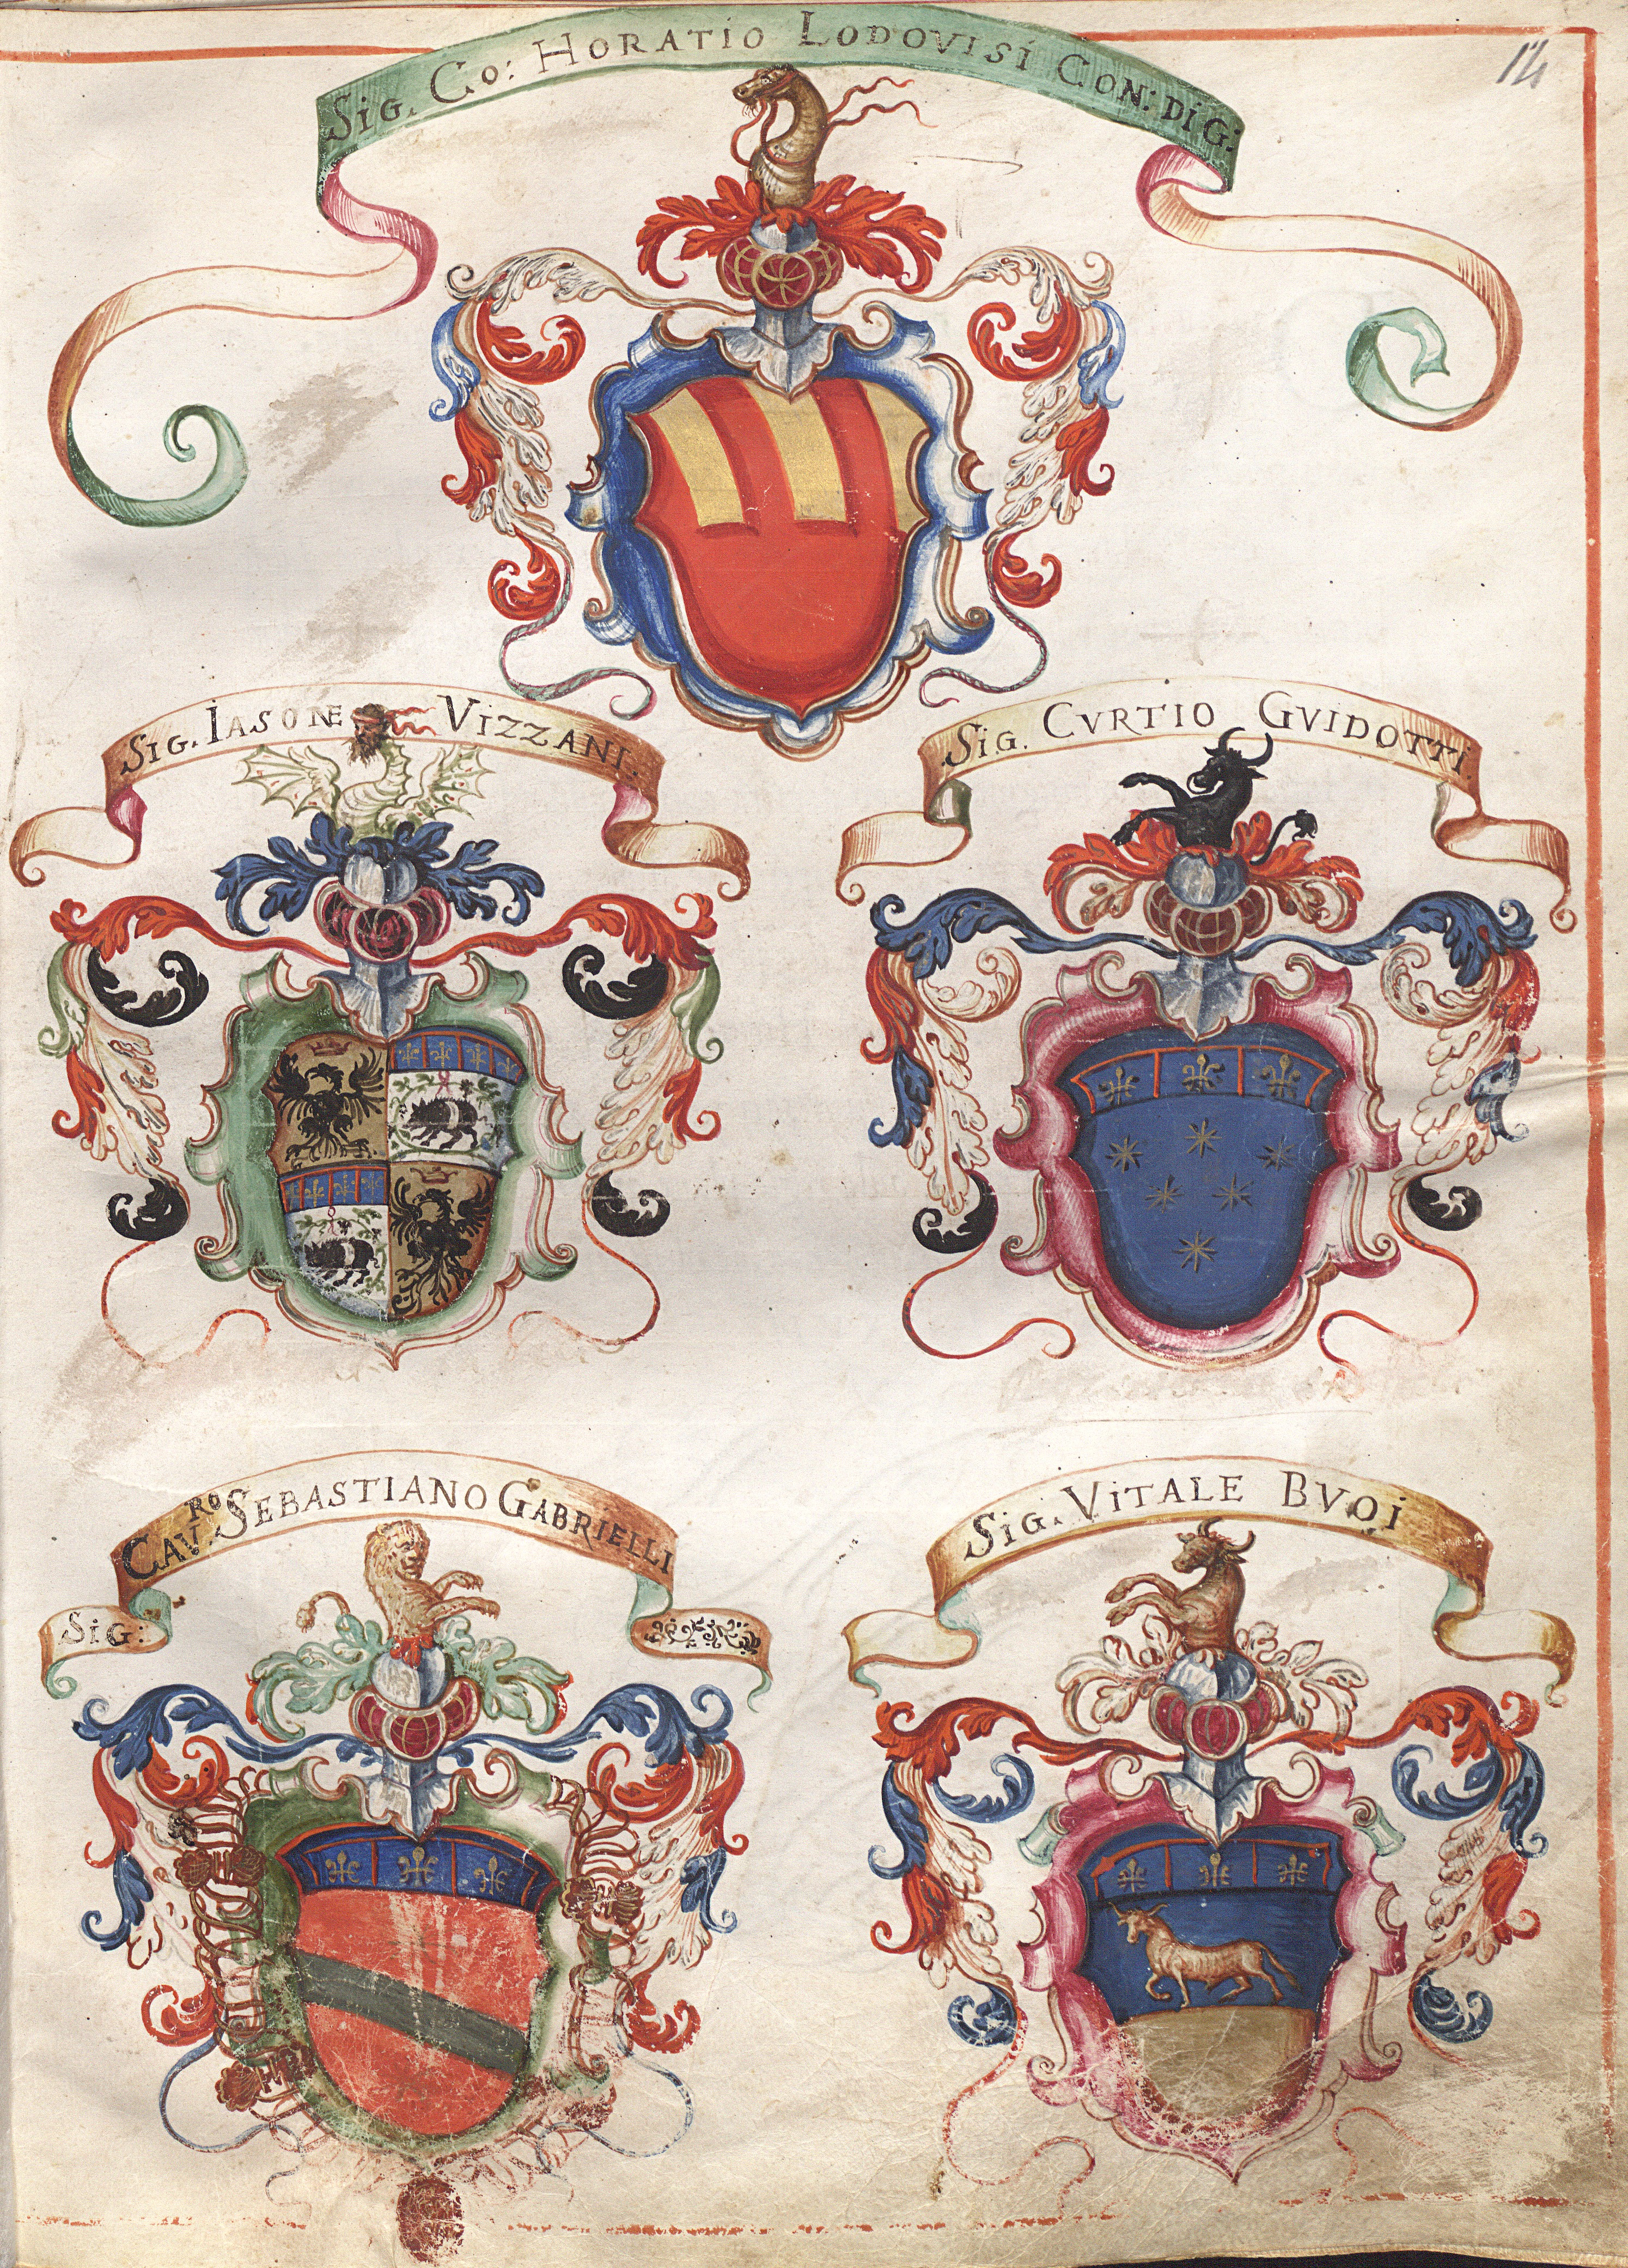 12
SIG. CO: HORATIO LODOVISI CON: DI G:
SIG. IASONE VIZZANI.
SIG. CVRTIO GVIDOTTI.
SIG: CAV.RO SEBASTIANO GABRIELLI
SIG. VITALE BVOI